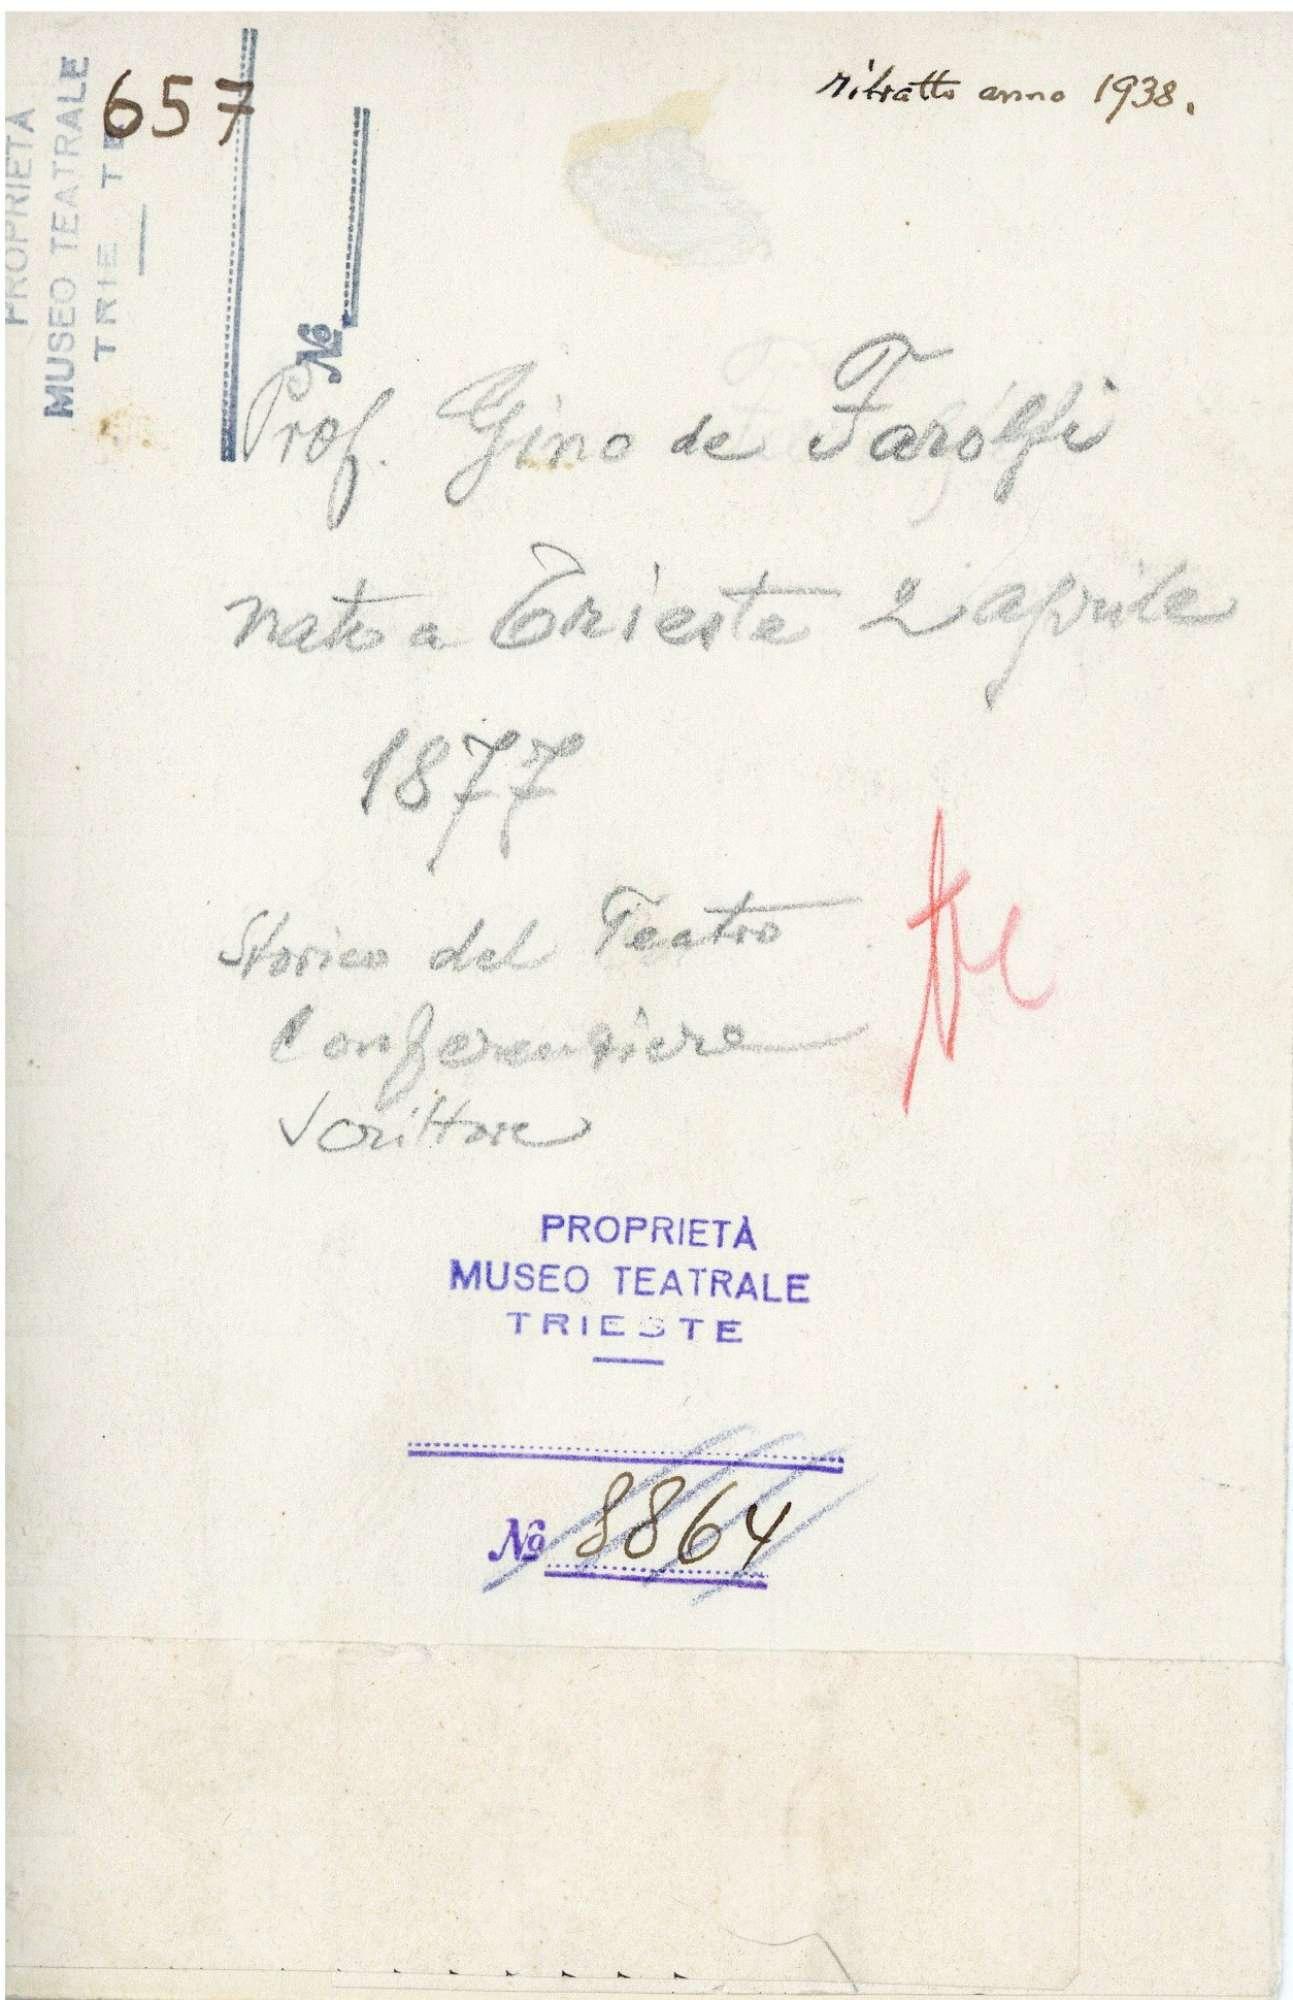 657
ritratto anno 1938.
PROPRIETÀ
MUSEO TEATRALE
TRIE TE
No
Prof. Gino de Farolfi
nato a Trieste 2 aprile
1877
Storico del Teatro
Conferenziere
Scrittore
PROPRIETÀ
MUSEO TEATRALE
TRIESTE
No 8864